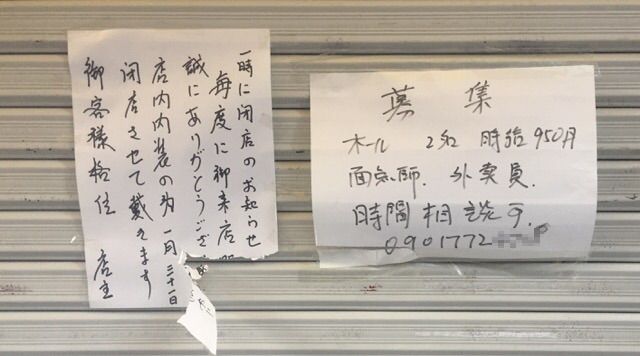 一時に閉店のお知らせ
毎度に御来店
誠にありがとうござ
店内内装の為 一月三十一日
閉店させて戴きます
御客様格位 店主
募集
ホール 2名 時給950月
面点師. 外卖員.
時間相談可.
0901772